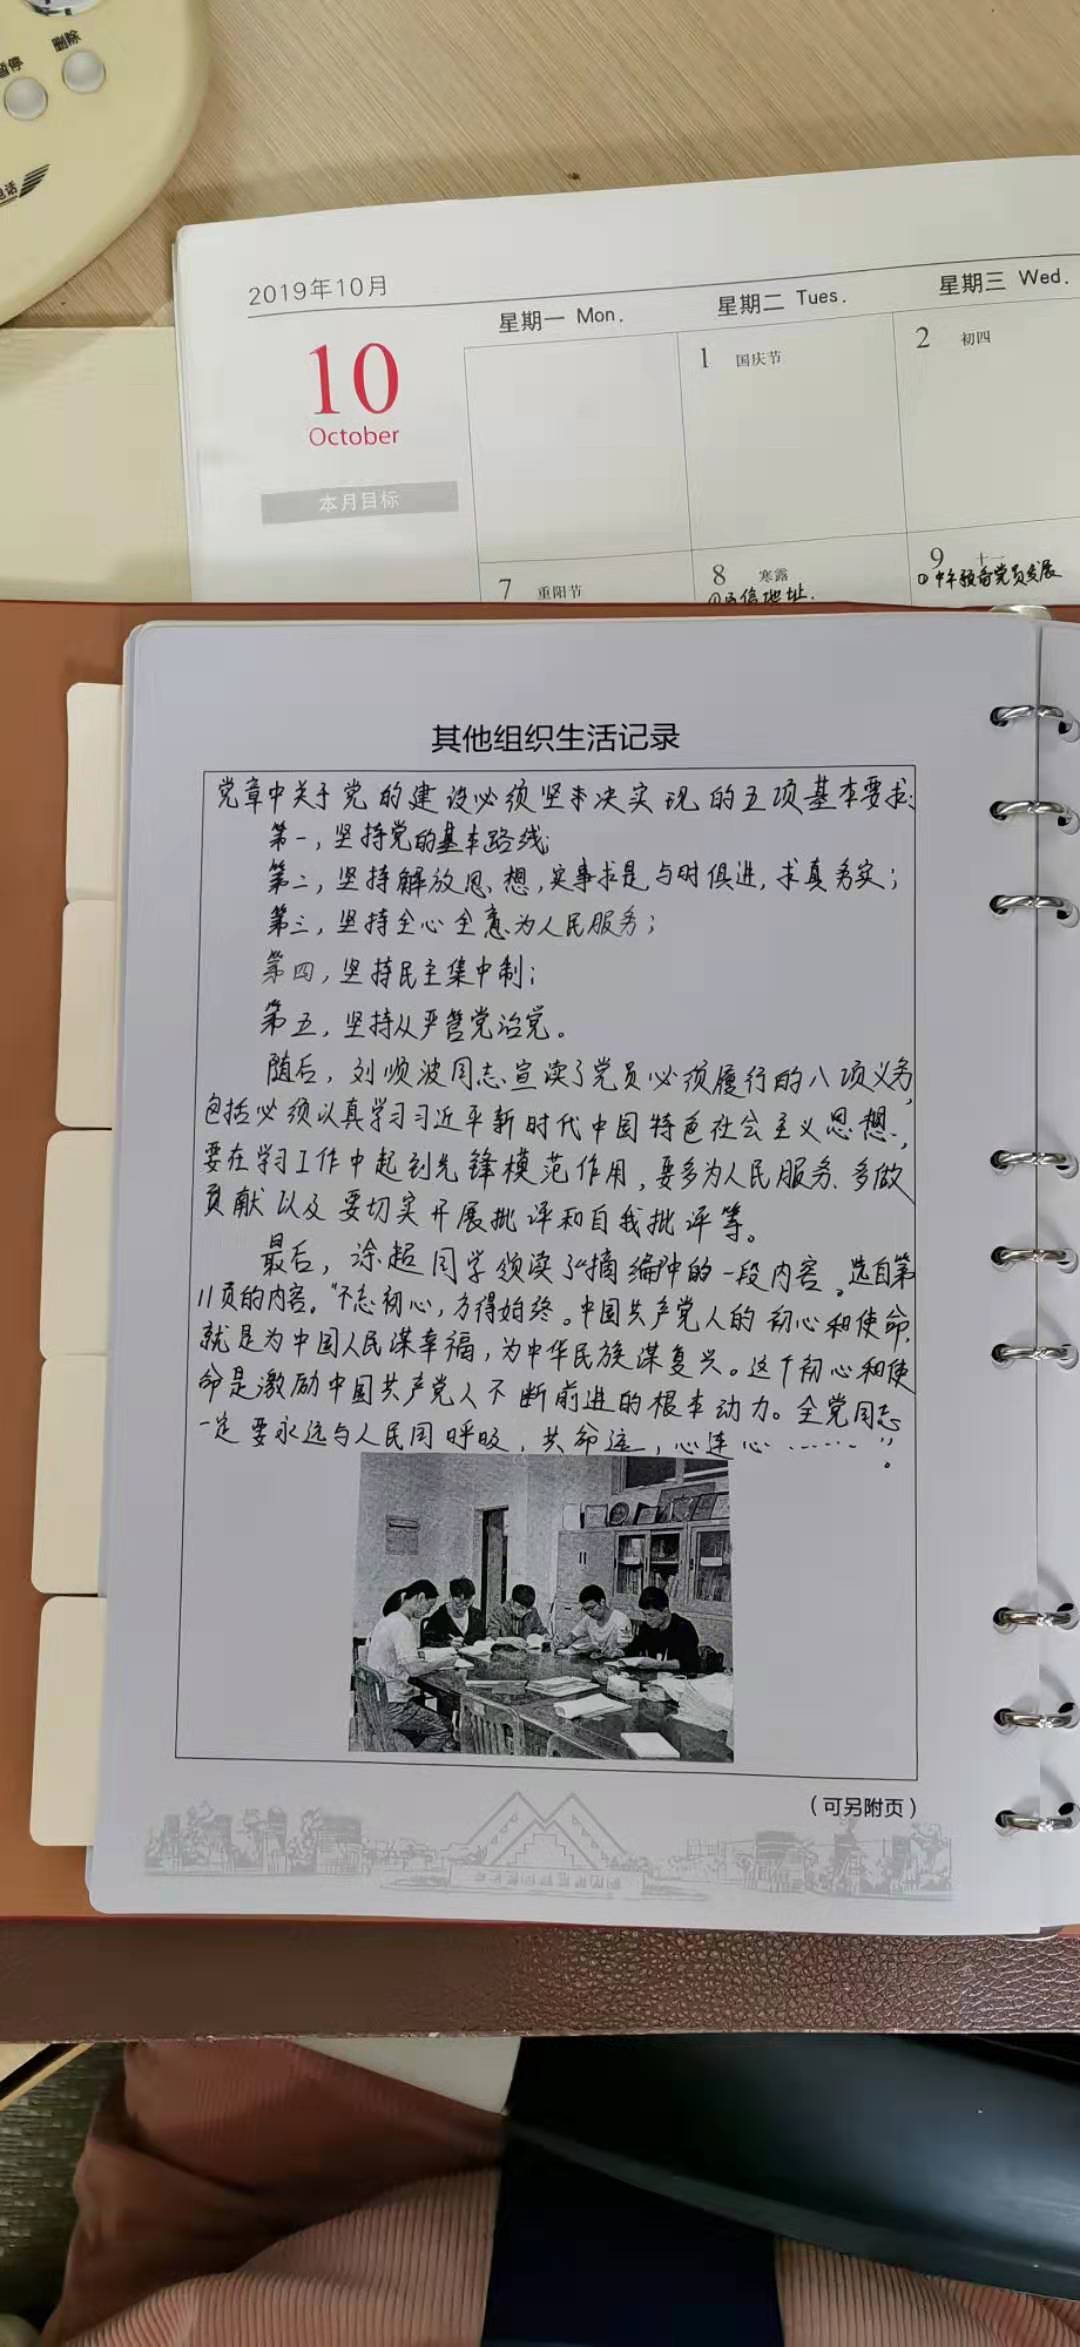 删除
暂停
电话
2019年10月
星期一 Mon.
星期二 Tues.
星期三 Wed.
10
October
本月目标
1 国庆节
2 初四
7 重阳节
8 寒露
9 十一
地址.
①中午预备党员发展
其他组织生活记录
党章中关于党的建设必须坚决实现的五项基本要求:
第一，坚持党的基本路线;
第二，坚持解放思想，实事求是与时俱进，求真务实；
第三，坚持全心全意为人民服务；
第四，坚持民主集中制；
第五，坚持从严管党治党。
随后，刘顺波同志宣读了党员必须履行的八项义务，
包括必须认真学习习近平新时代中国特色社会主义思想，
要在学习工作中起到先锋模范作用，要多为人民服务、多做
贡献以及要切实开展批评和自我批评等。
最后，涂超同学领读了“摘编”中的一段内容。选自第
11页的内容。“不忘初心，方得始终。中国共产党人的初心和使命，
就是为中国人民谋幸福，为中华民族谋复兴。这个初心和使
命是激励中国共产党人不断前进的根本动力。全党同志
一定要永远与人民同呼吸，共命运，心连心……”。
（可另附页）